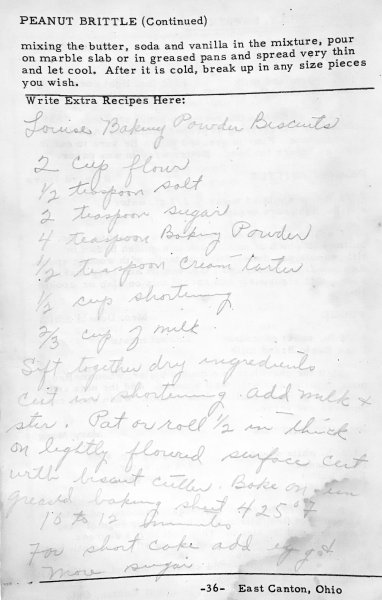 PEANUT BRITTLE (Continued)
mixing the butter, soda and vanilla in the mixture, pour
on marble slab or in greased pans and spread very thin
and let cool. After it is cold, break up in any size pieces
you wish.
Write Extra Recipes Here:
Louise Baking Powder Biscuits
2 cup flour
1/2 teaspoon salt
2 teaspoon sugar
4 teaspoon Baking Powder
1/2 teaspoon cream tarter
1/2 cup shortening
2/3 cup of milk.
Sift together dry ingredients
cut in shortening add milk &
stir. Pat or roll 1/2 in thick
on lightly floured surface cut
with biscuit cutter. Bake on
greased baking sheet 425° F
10 to 12 minutes
For short cake add egg &
more sugar
-36- East Canton, Ohio